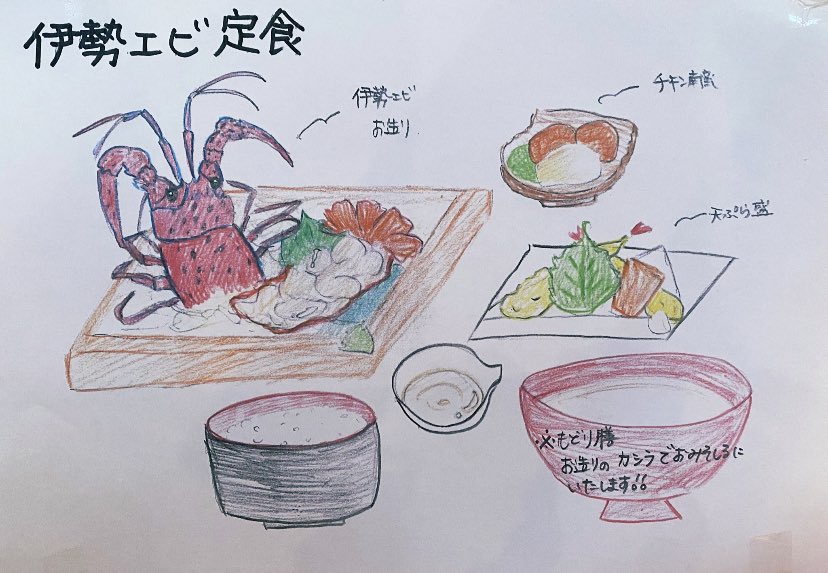 伊勢エビ定食
伊勢エビ
お造り
チキン南蛮
天ぷら盛
※もどり膳
お造りのカシラでおみそしるに
いたします!!